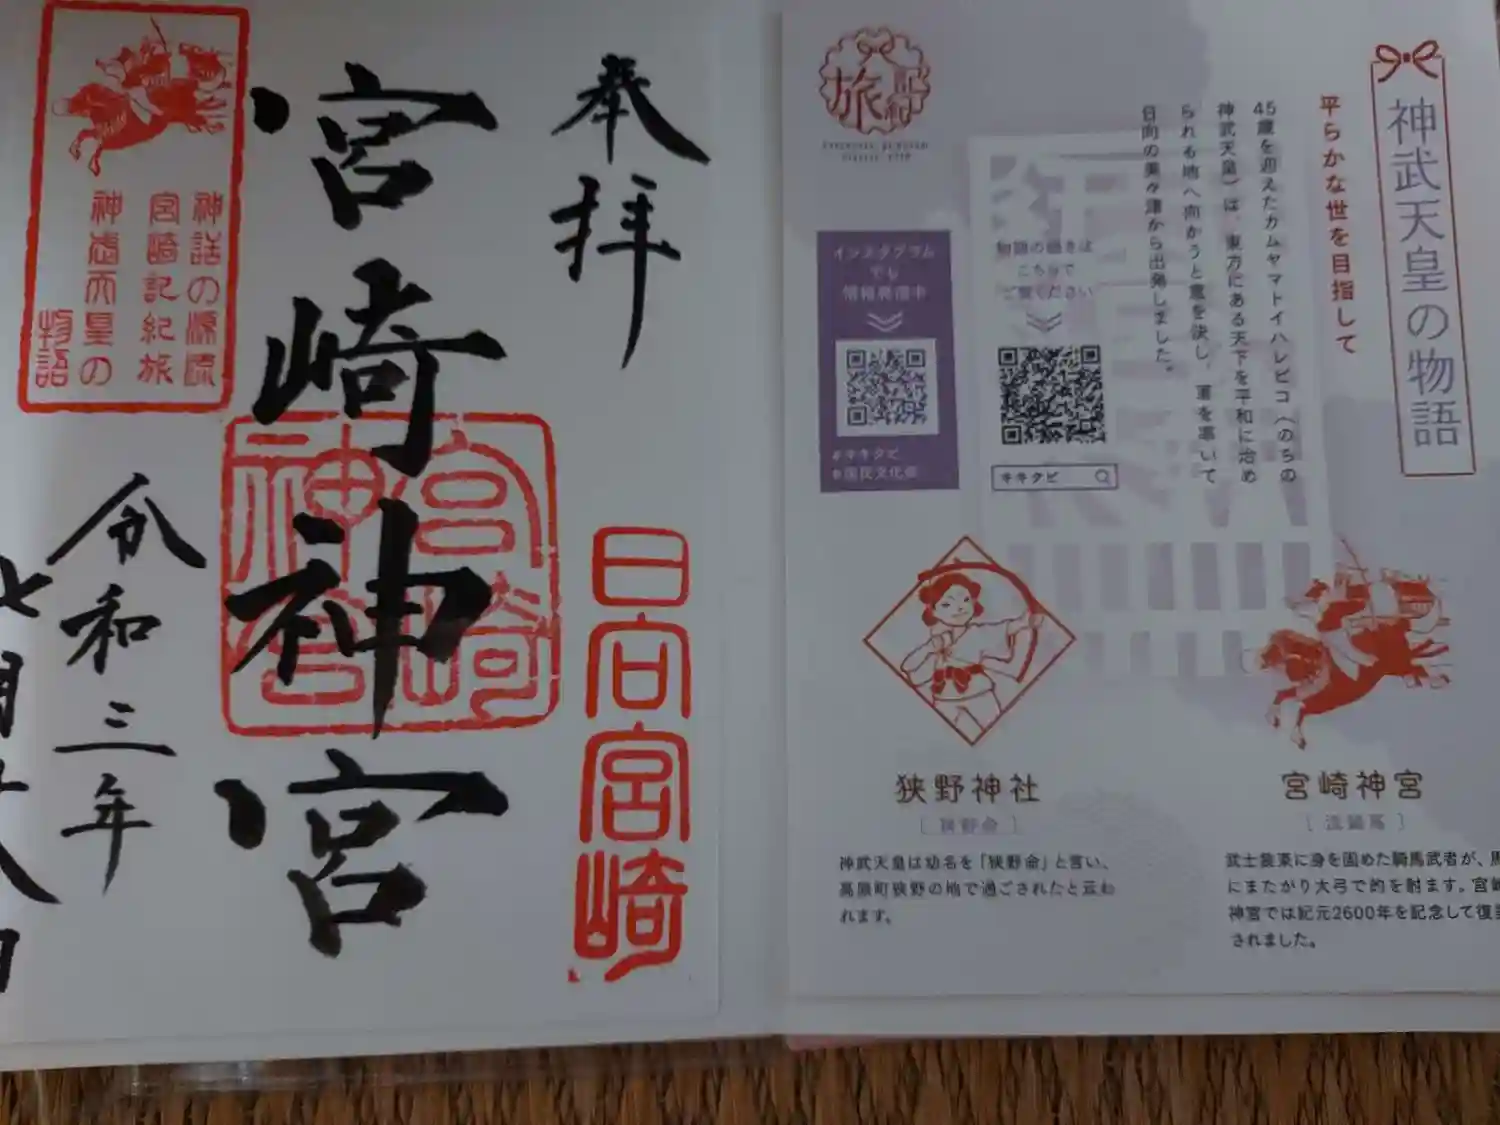 奉拝
宮崎神宮
令和三年
神話の源流
宮崎記紀旅
神武天皇の
物語
宮崎
神宮
日向宮崎
神武天皇の物語
平らかな世を目指して
45歳を迎えたカムヤマトイハレビコ(のちの
神武天皇)は、東方にある天下を平和に治め
られる地へ向かうと意を決し、軍を率いて
日向の美々津から出発しました。
物語の続きは
こちらで
ご覧ください
キキタビ
インスタグラム
でも
情報発信中
#キキタビ
#国民文化祭
宮崎神宮
[流鏑馬]
武士装束に身を固めた騎馬武者が、馬
にまたがり大弓で的を射ます。宮崎
神宮では紀元2600年を記念して復活
されました。
狭野神社
[狭野命]
神武天皇は幼名を「狭野命」と言い、
高原町狭野の地で過ごされたと云わ
れます。